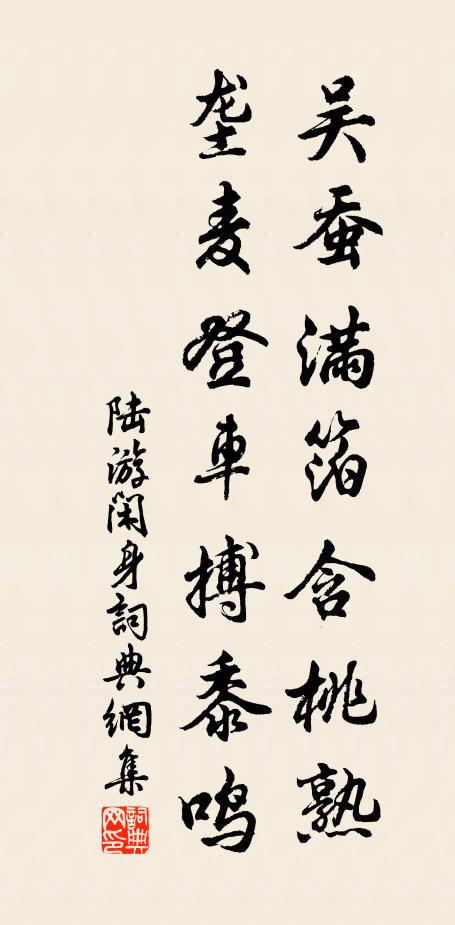 吴蚕满箔含桃熟
垄麦登车搏黍鸣
陆游闲身詞典網集
詞典网印